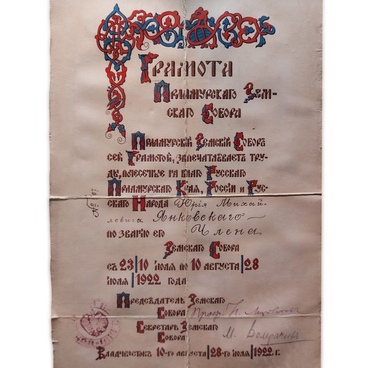 Грамота
Приамурскаго Зем-
скаго Собора
Приамурскій Земскій Собор
сей Грамотой, запечатлѣваетъ тру-
ды, понесенные на благо Русскаго
Приамурскаго Края, Россіи и Рус-
скаго Народа Юрія Михай-
ловича Янковскаго
по званію его Члена
Земскаго Собора
съ 23/10 іюля по 10 августа/28
іюля 1922 года
Предсѣдатель Земскаго
Собора Проф.
Секретарь Земскаго
Собора М.
Владивостокъ 10-го августа/28-го іюля/1922 г.